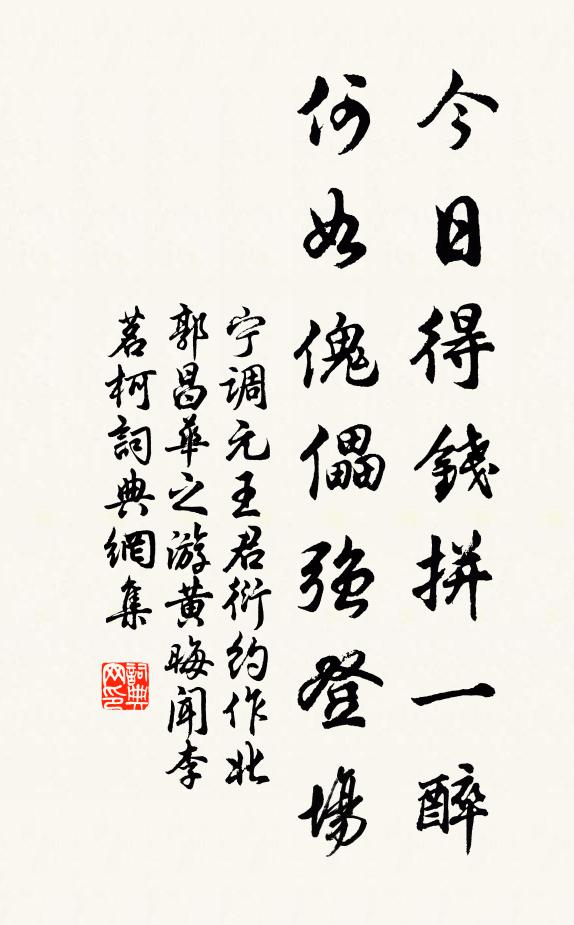 今日得錢拼一醉
何如傀儡強登場
宁調元王君衍約作北
郭昌華之游黄晦聞李
茗柯詞典網集
詞典网印